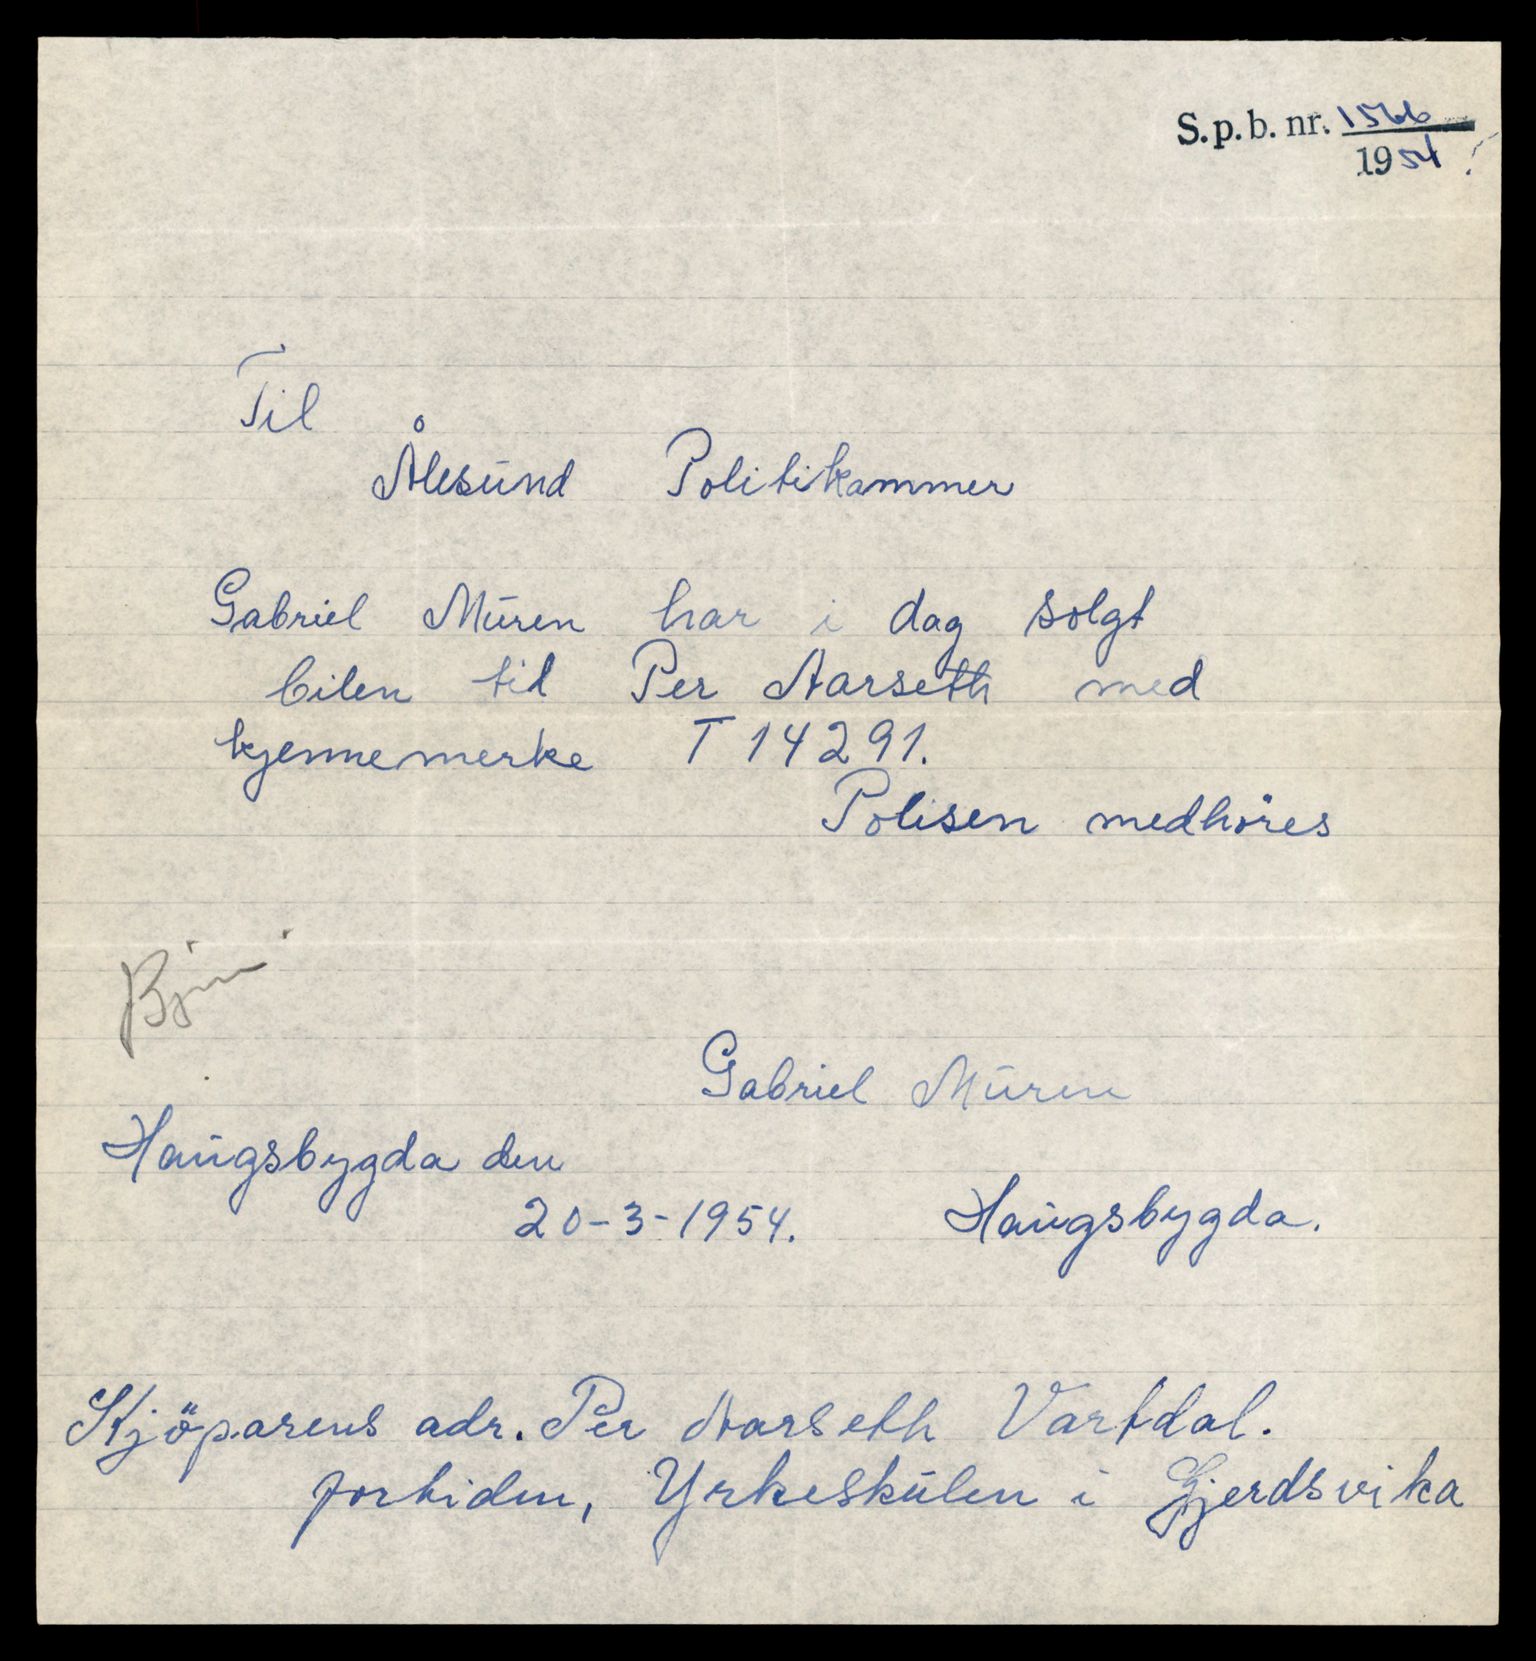 S.p.b. nr. 1566
1954
Til
Ålesund Politikammer
Gabriel Muren har i dag solgt
bilen til Per Aarseth med
kjennemerke T 14291.
Polisen medhöres
Gabriel Muren
Haugsbygda den
20-3-1954. Haugsbygda.
Kjöparens adr. Per Aarseth Vartdal.
fortiden, Yrkeskulen i Gjerdsvika